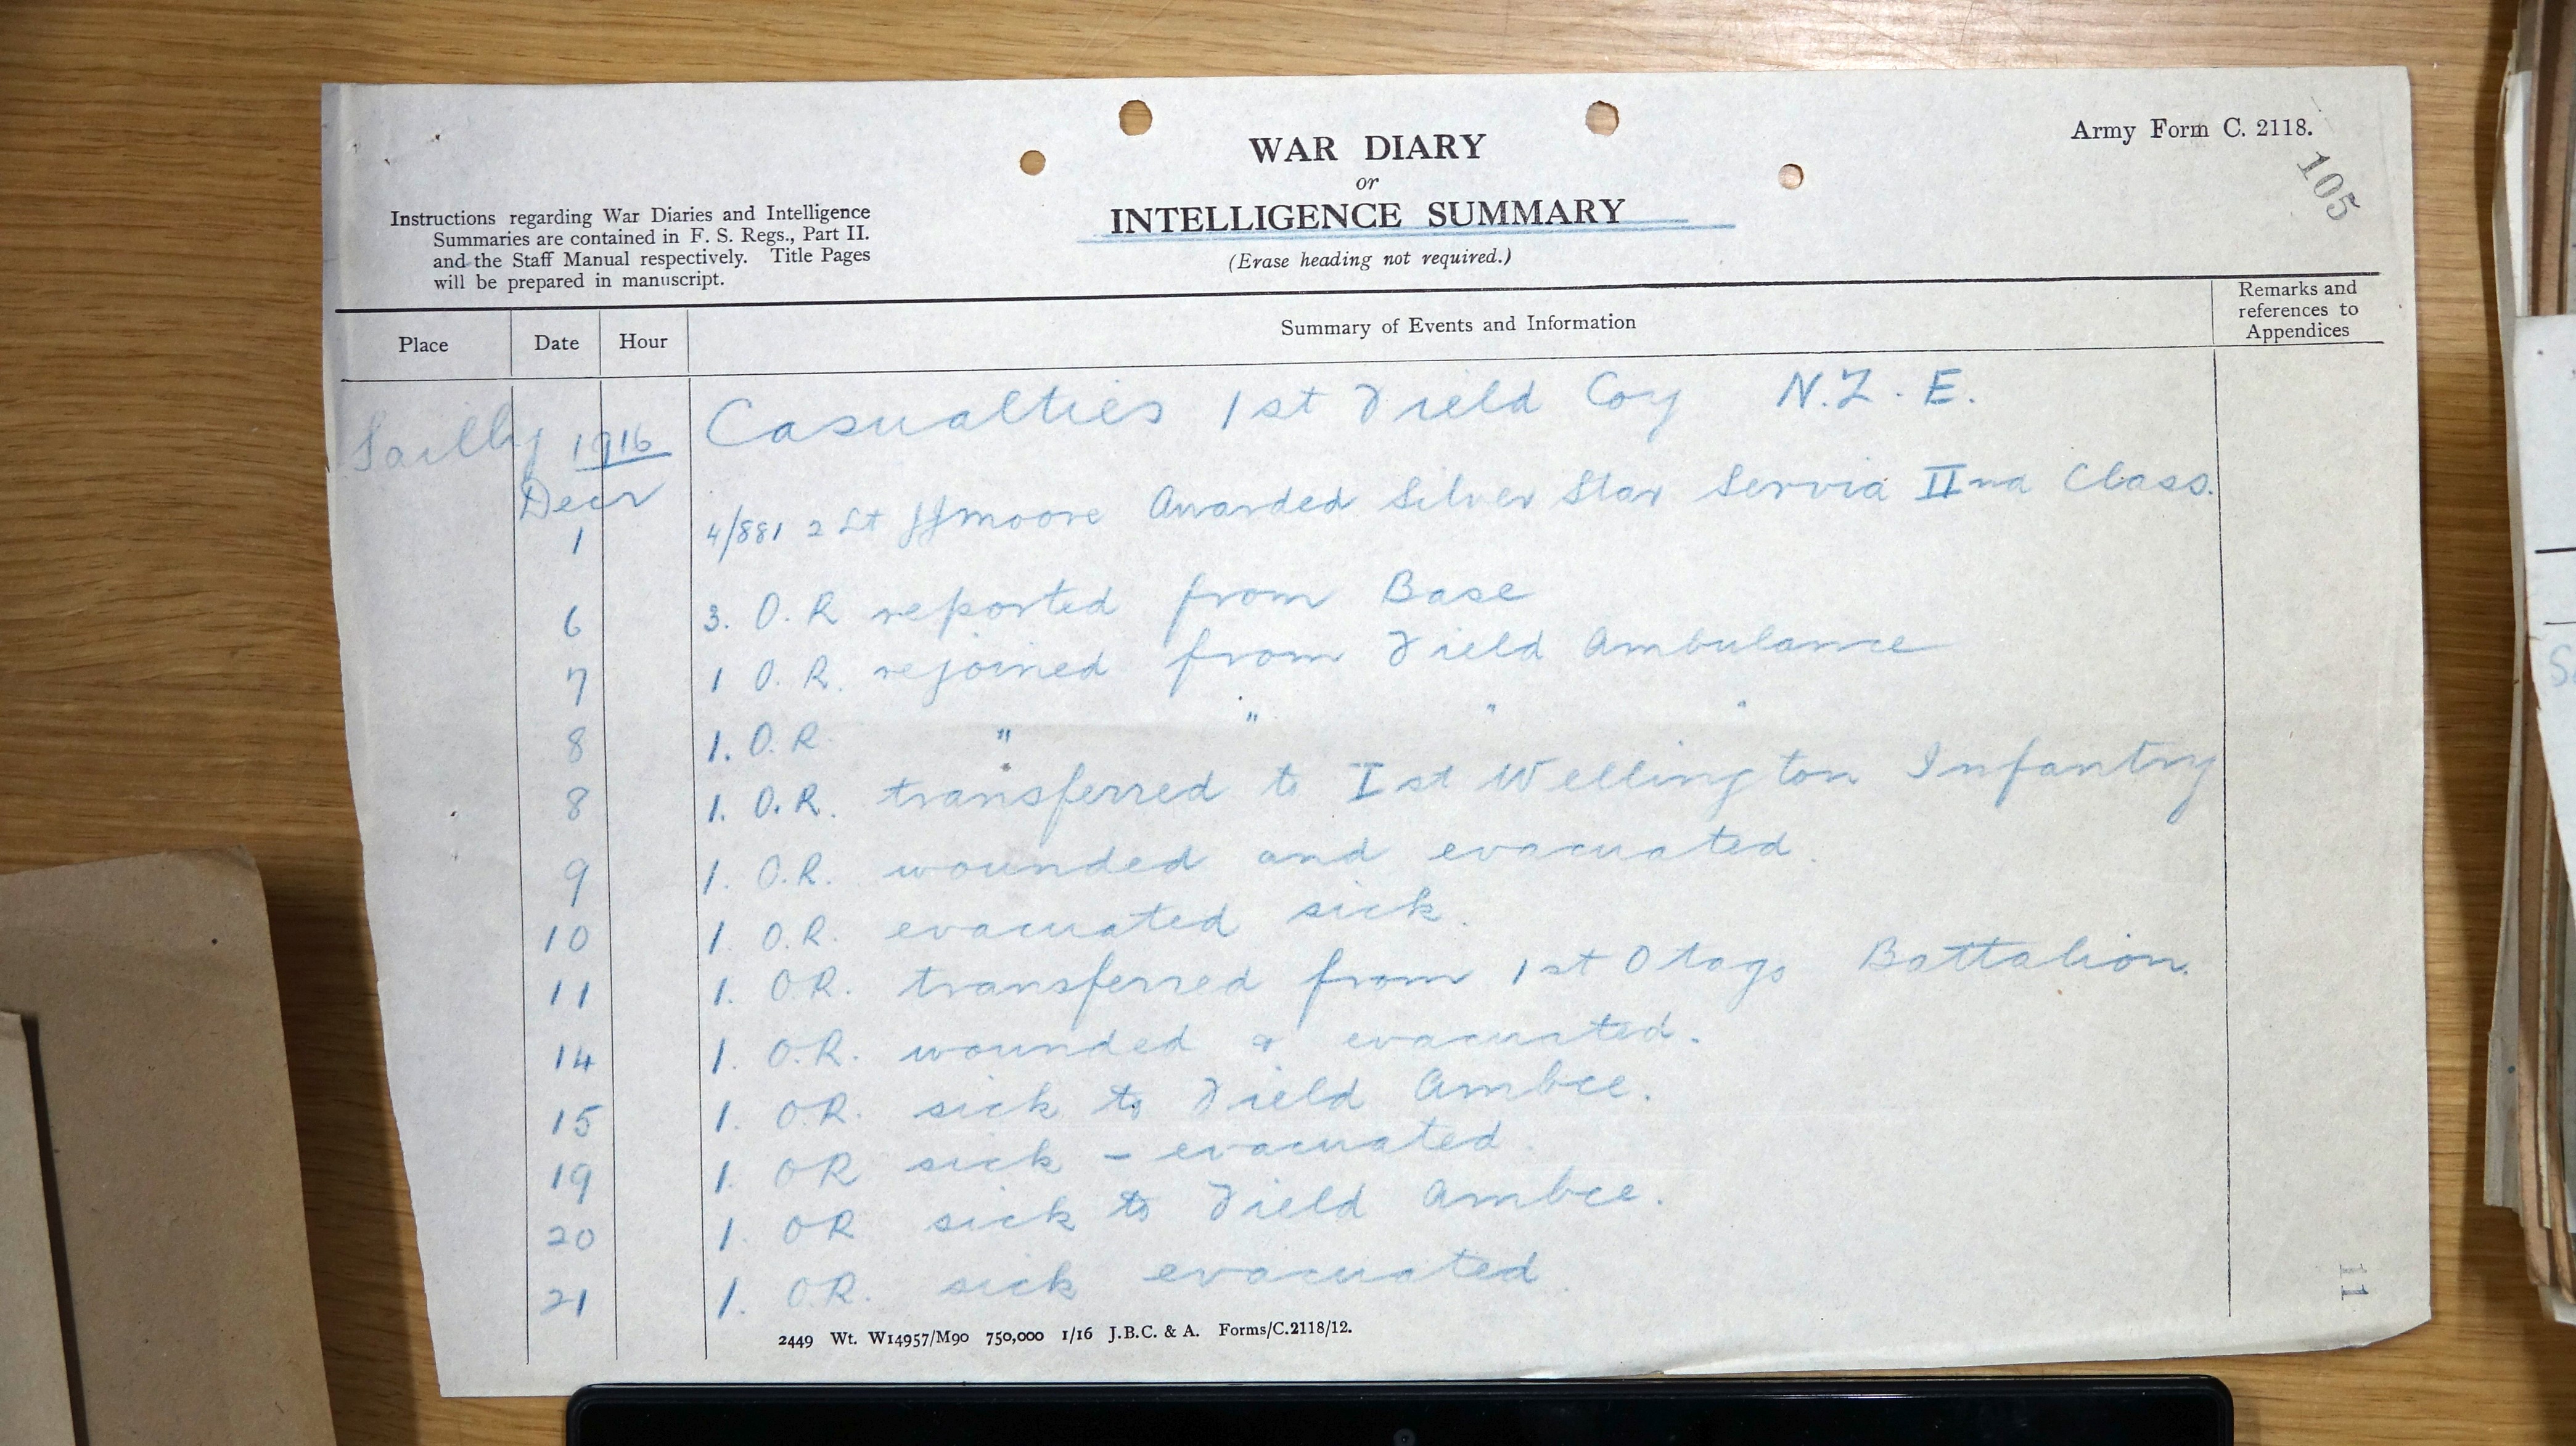 Army Form C. 2118.
105
WAR DIARY
or
INTELLIGENCE SUMMARY
(Erase heading not required.)
Instructions regarding War Diaries and Intelligence
Summaries are contained in F. S. Regs., Part II.
and the Staff Manual respectively. Title Pages
will be prepared in manuscript.
Place Date Hour Summary of Events and Information Remarks and references to Appendices
Sailly 1916 Casualties 1st Field Coy N.Z.E.
Decr
1 4/881 2 Lt Moore Awarded Silver Star Servia IInd Class.
6 3. O.R reported from Base
7 1 O.R. rejoined from Field Ambulance
8 1. O.R. " " " "
8 1. O.R. transferred to Ist Wellington Infantry
9 1. O.R. wounded and evacuated.
10 1 O.R. evacuated sick.
11 1. O.R. transferred from 1st Otago Battalion.
14 1. O.R. wounded & evacuated.
15 1. O.R. sick to Field Ambce.
19 1. OR sick - evacuated.
20 1. OR sick to Field Ambce.
21 1. O.R. sick evacuated
2449 Wt. W14957/M90 750,000 1/16 J.B.C. & A. Forms/C.2118/12.
11